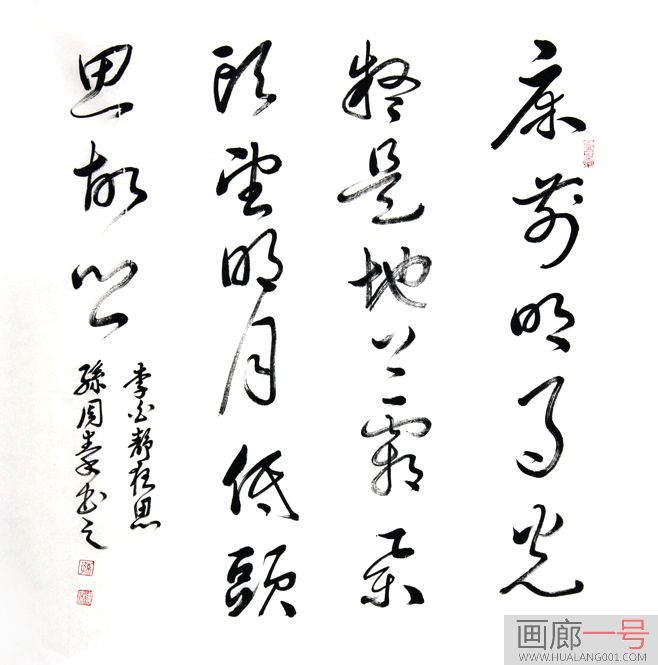 床前明月光
疑是地上霜举
头望明月低頭
思故乡
李白靜夜思
孫周書之
画廊一号
WWW.HUALANG001.COM